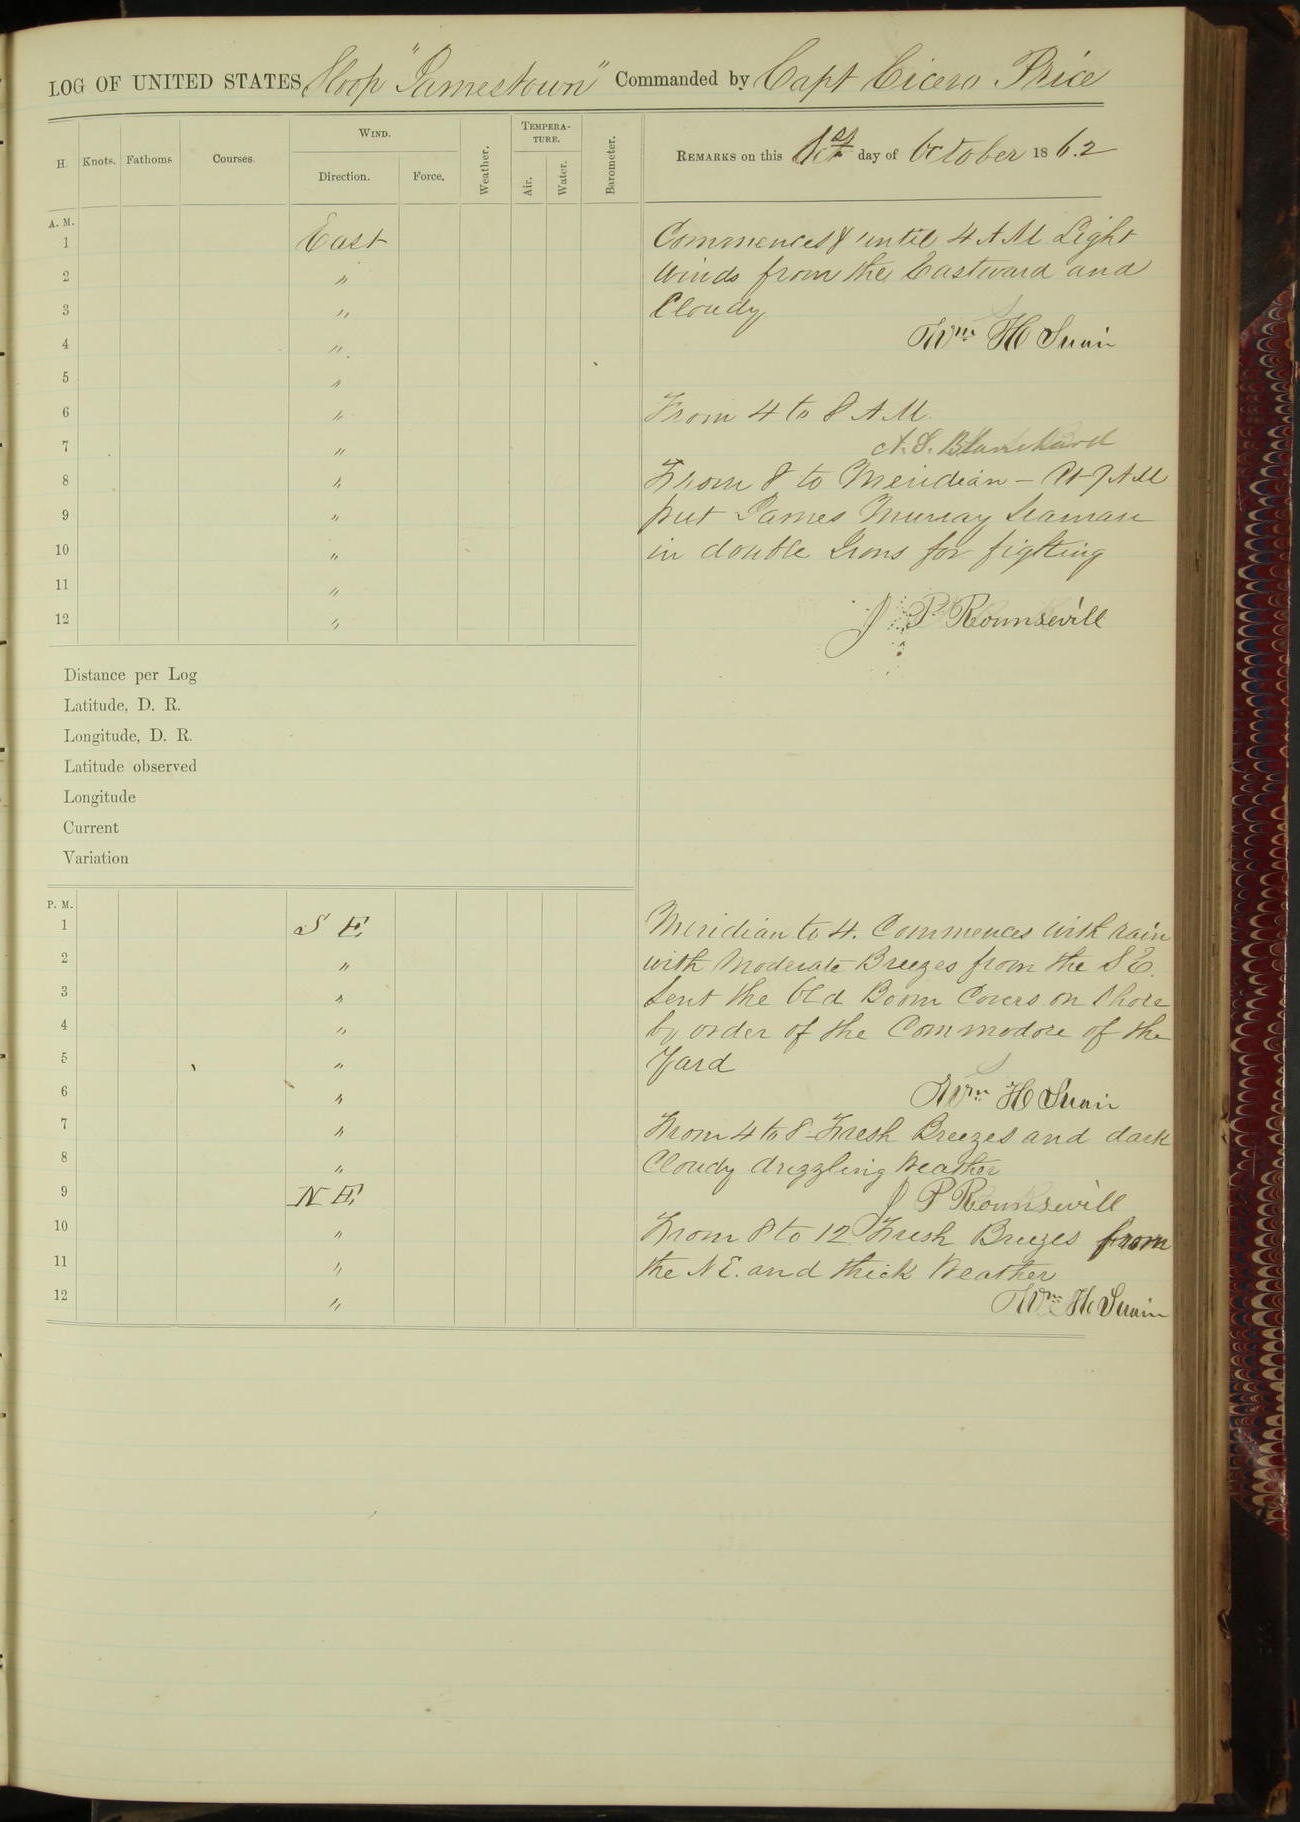 LOG OF UNITED STATES Sloop "Jamestown" Commanded by Capt Cicero Price
H. Knots. Fathoms Courses. WIND. Direction. Force. Weather. TEMPERATURE. Air. Water. Barometer. REMARKS on this 1st day of October 1862
A. M.
1 East Commences & until 4 AM Light
2 " Winds from the Eastward and
3 " Cloudy
4 " Wm H Swain
5 "
6 " From 4 to 8 AM.
7 " A. S. Blanchard
8 " From 8 to Meridian - At 7 AM
9 " put James Murray Seaman
10 " in double Irons for fighting
11 "
12 " J P Rounsevill
Distance per Log
Latitude, D. R.
Longitude, D. R.
Latitude observed
Longitude
Current
Variation
P. M.
1 S E, Meridian to 4. Commences with rain
2 " with Moderate Breezes from the S E.
3 " Sent the Old Boom Covers on Shore
4 " by order of the Commodore of the
5 " Yard
6 " Wm H Swain
7 " From 4 to 8 Fresh Breezes and dark
8 " Cloudy drizzling Weather
9 N E, J P Rounsevill
10 " From 8 to 12 Fresh Breezes from
11 " the N E. and thick Weather
12 " Wm H Swain